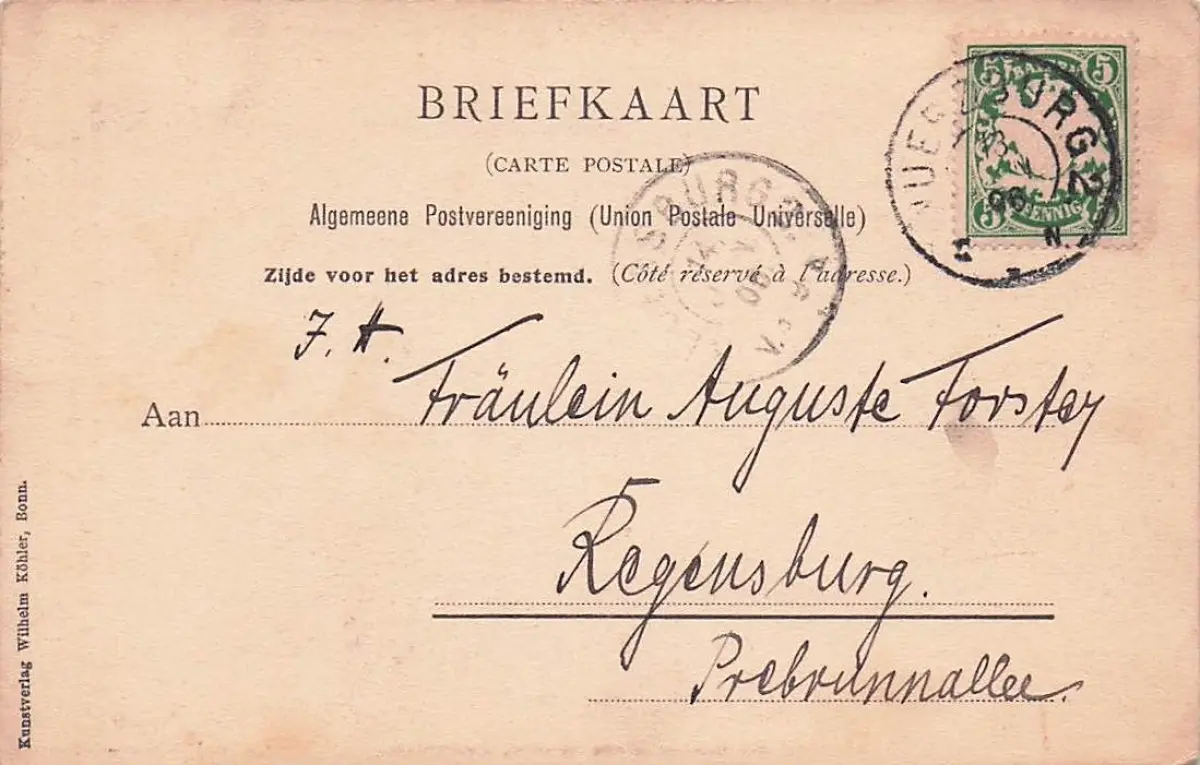 BRIEFKAART
(CARTE POSTALE)
Algemeene Postvereeniging (Union Postale Universelle)
Zijde voor het adres bestemd. (Côté réservé à l'adresse.)
J. H.
Aan Fräulein Auguste Forster
Regensburg.
Prebrunnallee.
Kunstverlag Wilhelm Köhler, Bonn.
5 BAYERN 5
5 PFENNIG
WUERZBURG 2
06
N.
BURG 2
06
V.